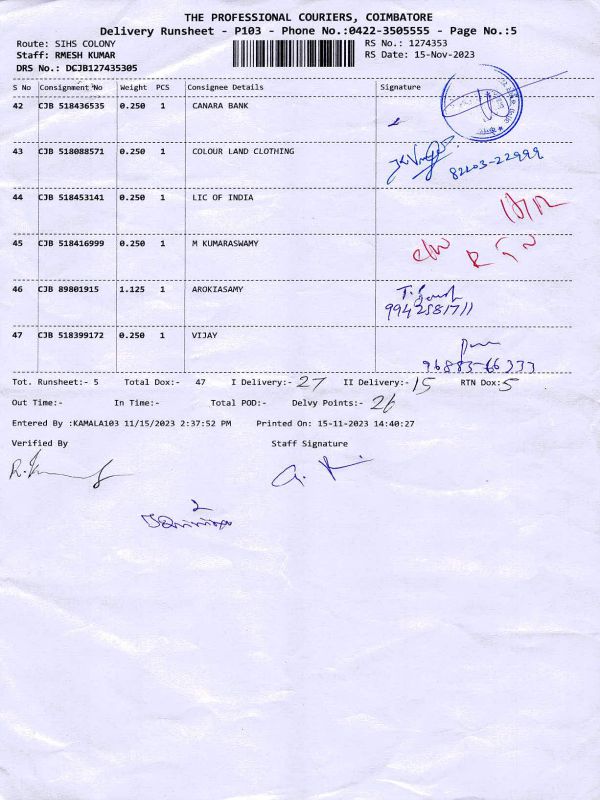 THE PROFESSIONAL COURIERS, COIMBATORE
Delivery Runsheet - P103 - Phone No.:0422-3505555 - Page No.:5
Route: SIHS COLONY RS No.: 1274353
Staff: RMESH KUMAR RS Date: 15-Nov-2023
DRS No.: DCJB127435305
S No Consignment No Weight PCS Consignee Details Signature
42 CJB 518436535 0.250 1 CANARA BANK
43 CJB 518088571 0.250 1 COLOUR LAND CLOTHING
82203-22999
44 CJB 518453141 0.250 1 LIC OF INDIA
45 CJB 518416999 0.250 1 M KUMARASWAMY
46 CJB 89801915 1.125 1 AROKIASAMY
9942581711
47 CJB 518399172 0.250 1 VIJAY
96883-66333
Tot. Runsheet:- 5 Total Dox:- 47 I Delivery:- 27 II Delivery:- 15 RTN Dox:- 5
Out Time:- In Time:- Total POD:- Delvy Points:- 26
Entered By :KAMALA103 11/15/2023 2:37:52 PM Printed On: 15-11-2023 14:40:27
Verified By Staff Signature